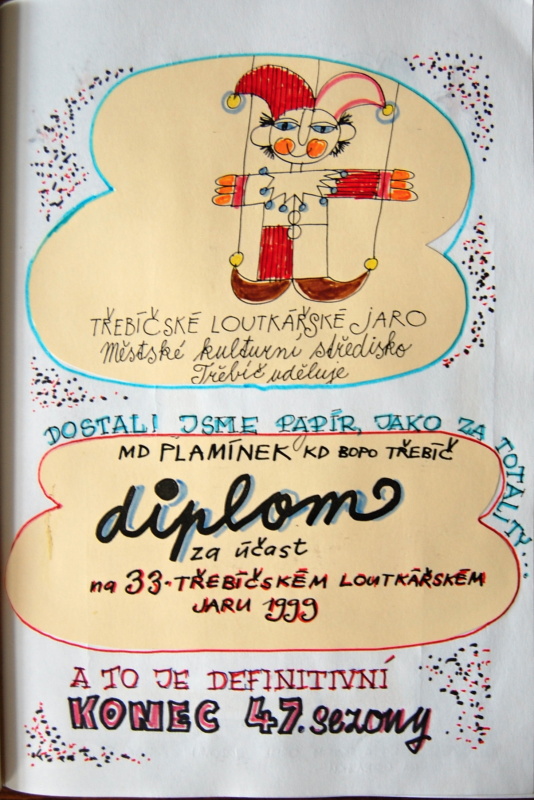 TŘEBÍČSKÉ LOUTKÁŘSKÉ JARO
Městské kulturní středisko
Třebíč uděluje
DOSTALI JSME PAPÍR, JAKO ZA TOTALITY...
MD PLAMÍNEK KD BOPO TŘEBÍČ
diplom
za účast
na 33. TŘEBÍČSKÉM LOUTKÁŘSKÉM
JARU 1999
A TO JE DEFINITIVNÍ
KONEC 47. sezony